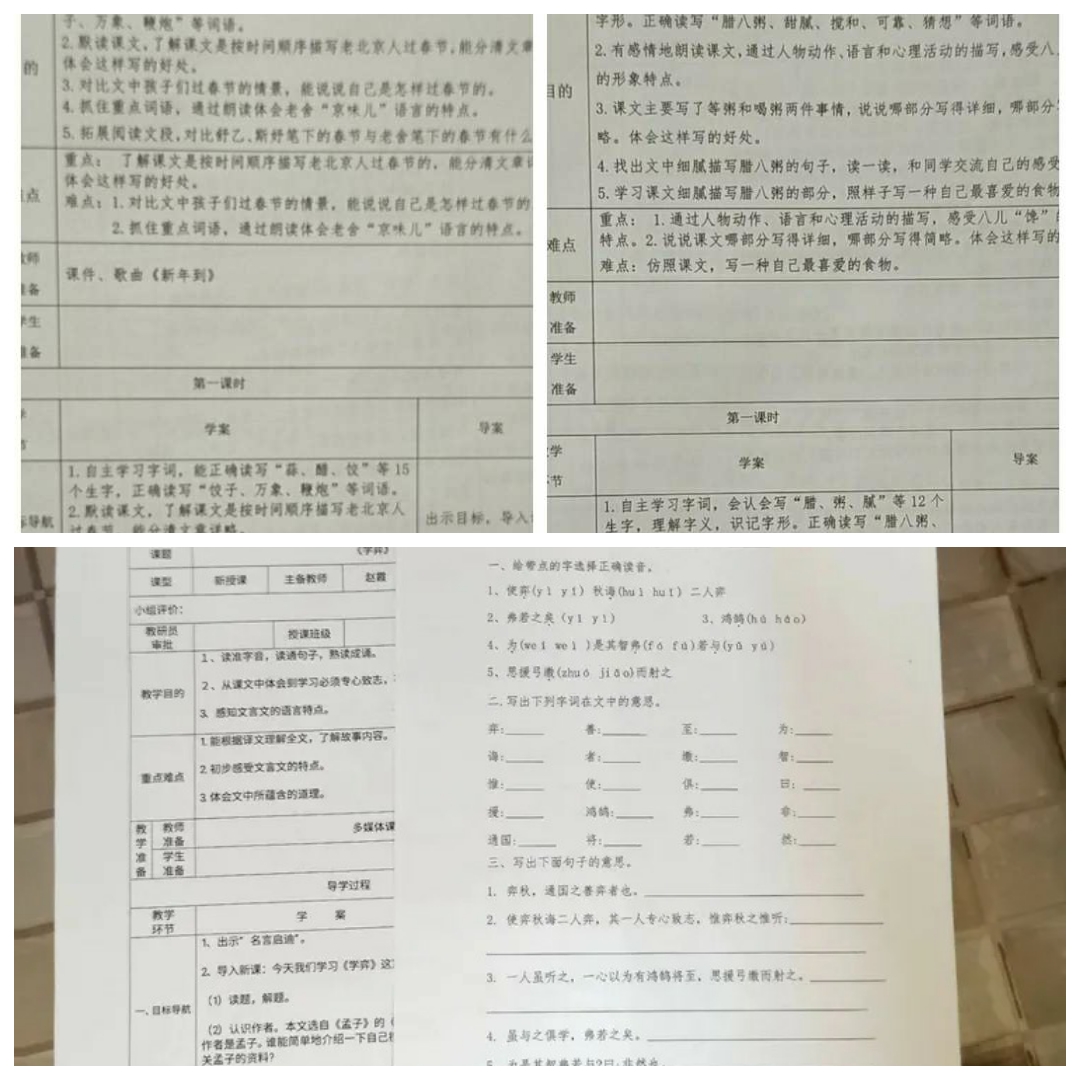 子、万象、鞭炮”等词语。
2.默读课文,了解课文是按时间顺序描写老北京人过春节,能分清文章
体会这样写的好处。
的
3.对比文中孩子们过春节的情景,能说说自己是怎样过春节的。
4.抓住重点词语,通过朗读体会老舍“京味儿”语言的特点。
5.拓展阅读文段,对比舒乙、斯妤笔下的春节与老舍笔下的春节有什么
重点: 了解课文是按时间顺序描写老北京人过春节的,能分清文章详
体会这样写的好处。
点
难点:1.对比文中孩子们过春节的情景,能说说自己是怎样过春节的
2.抓住重点词语,通过朗读体会老舍“京味儿”语言的特点。
课件、歌曲《新年到》
准备
学生
准备
第一课时
学案
导案
1.自主学习字词,能正确读写“蒜、醋、饺”等15
个生字,正确读写“饺子、万象、鞭炮”等词语。
2.默读课文,了解课文是按时间顺序描写老北京人
标导航
出示目标,导入
过春节,能分清文章详略。
字形。正确读写“腊八粥、甜腻、搅和、可靠、猜想”等词语。
2.有感情地朗读课文,通过人物动作、语言和心理活动的描写,感受八
的形象特点。
目的
3.课文主要写了等粥和喝粥两件事情,说说哪部分写得详细,哪部分
略。体会这样写的好处。
4.找出文中细腻描写腊八粥的句子,读一读,和同学交流自己的感受
5.学习课文细腻描写腊八粥的部分,照样子写一种自己最喜爱的食物
重点: 1.通过人物动作、语言和心理活动的描写,感受八儿“馋”的
难点
特点。2.说说课文哪部分写得详细,哪部分写得简略。体会这样写的
难点:仿照课文,写一种自己最喜爱的食物。
教师
准备
学生
准备
第一课时
学
学案
导案
环节
1.自主学习字词,会认会写“腊、粥、腻”等12个
生字,理解字义,识记字形。正确读写“腊八粥、
课题
《学弈》
课型
新授课
主备教师
赵霞
小组评价:
教研员
审批
授课班级
教学目的
1、读准字音,读通句子,熟读成诵。
2、从课文中体会到学习必须专心致志,
3. 感知文言文的语言特点。
重点难点
1.能根据译文理解全文,了解故事内容。
2.初步感受文言文的特点。
3.体会文中所蕴含的道理。
教学准备
教师
准备
多媒体课
学生
准备
导学过程
教学
环节
学 案
一、目标导航
1、出示“名言启迪”。
2. 导入新课:今天我们学习《学弈》这
(1) 读题,解题。
(2) 认识作者。本文选自《孟子》的《
作者是孟子。谁能简单地介绍一下自己
关孟子的资料?
一、给带点的字选择正确读音。
1、使弈(yì yí) 秋诲(huì huǐ) 二人弈
2、弗若之矣(yī yǐ)
3、鸿鹄(hú hào)
4、为(wéi wèi )是其智弗(fó fú)若与(yǔ yú)
5、思援弓缴(zhuó jiǎo)而射之
二.写出下列字词在文中的意思。
弈:_____ 善:_____ 至:_____ 为:_____
诲:_____ 者:_____ 缴:_____ 智:_____
惟:_____ 使:_____ 俱:_____ 曰:_____
援:_____ 鸿鹄:_____ 弗:_____ 非:_____
通国:_____ 将:_____ 若:_____ 然:_____
三、写出下面句子的意思。
1. 弈秋,通国之善弈者也。
2. 使弈秋诲二人弈,其一人专心致志,惟弈秋之惟听:
3. 一人虽听之,一心以为有鸿鹄将至,思援弓缴而射之。
4. 虽与之俱学,弗若之矣。
5. 为是其智弗若与?曰:非然也。